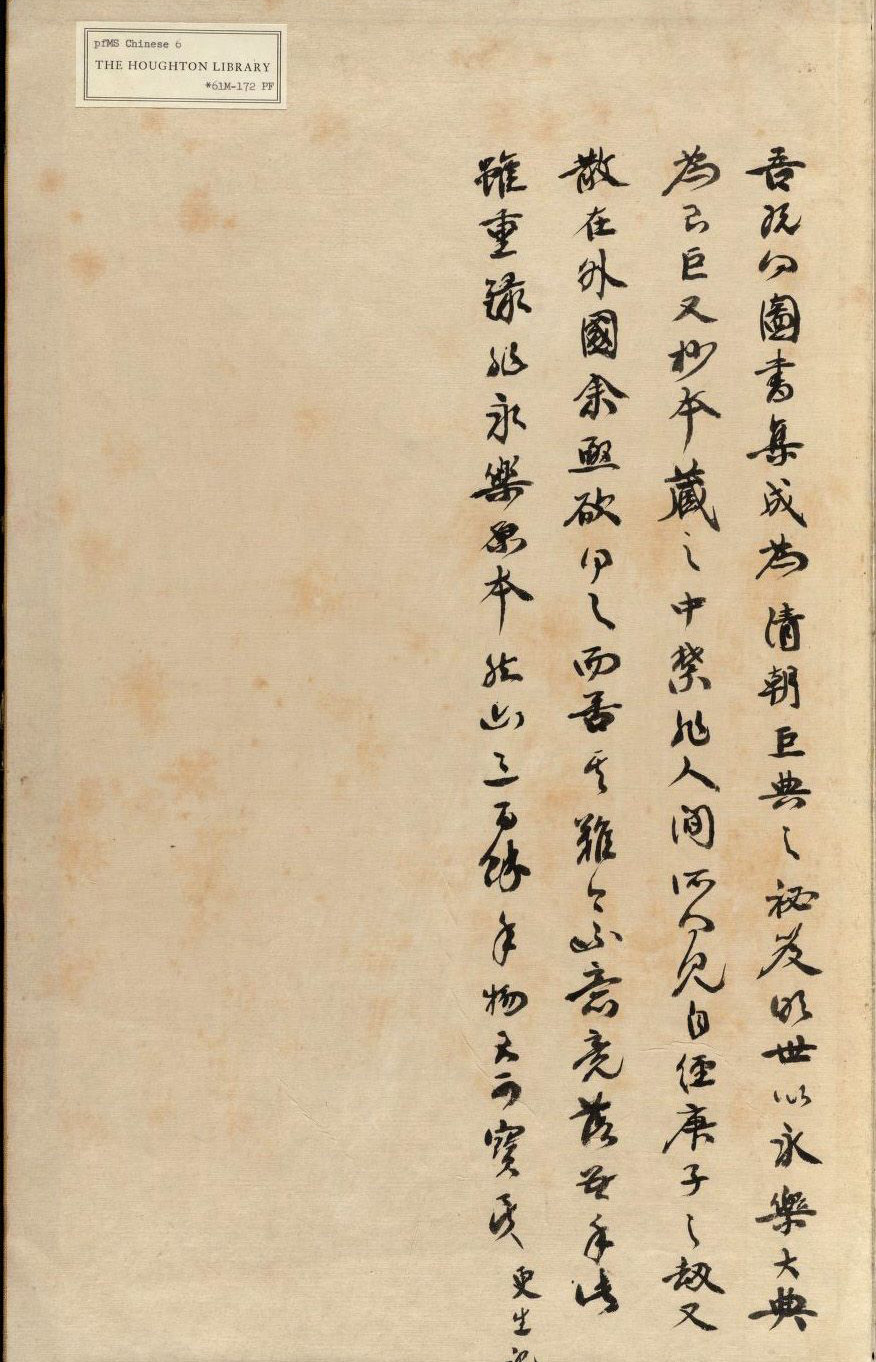 pfMS Chinese 6
THE HOUGHTON LIBRARY
*61M-172 PF
吾既得圖書集成為清朝巨典之秘笈明世以永樂大典
為最巨又抄本藏之中禁非人間所可見自經庚子之劫又
散在外國余亟欲得之而苦其難今不意竟落吾手此
雖重錄非永樂原本然亦三百餘年物大可寶哉
更生記